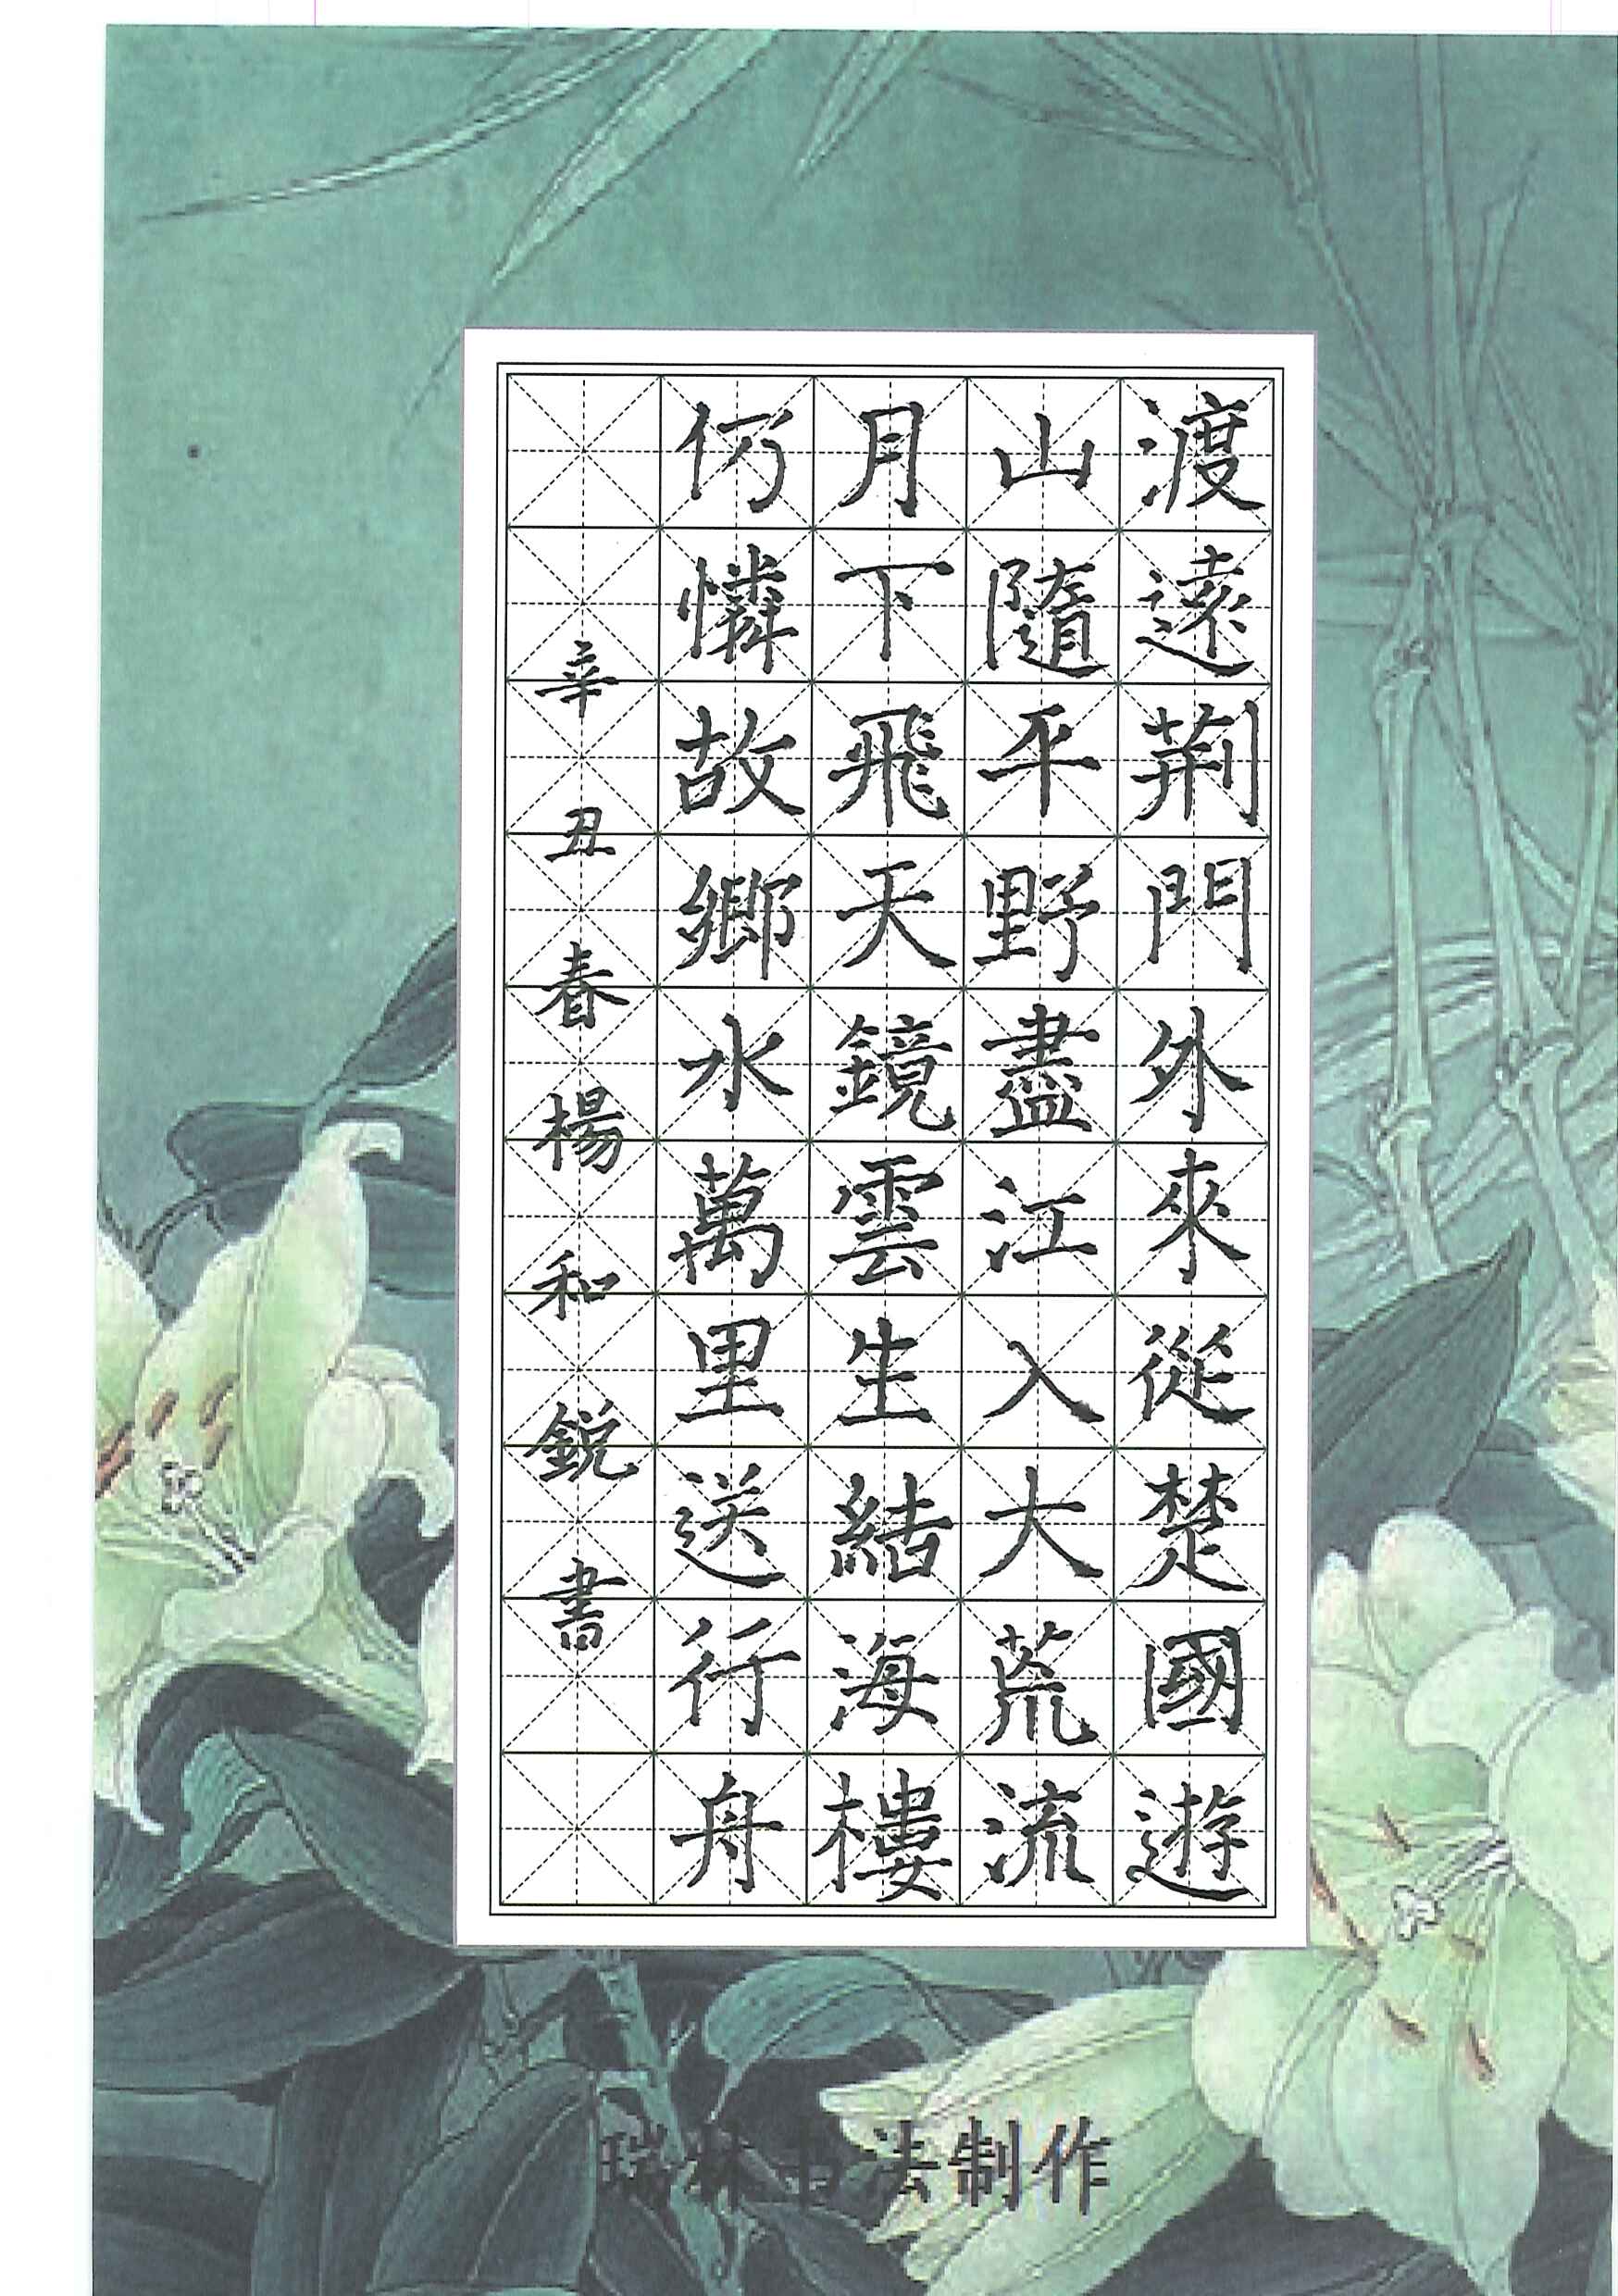 渡遠荆門外來從楚國遊
山隨平野盡江入大荒流
月下飛天鏡雲生結海樓
仍憐故鄉水萬里送行舟
辛丑春楊和銳書
瑞林书法制作